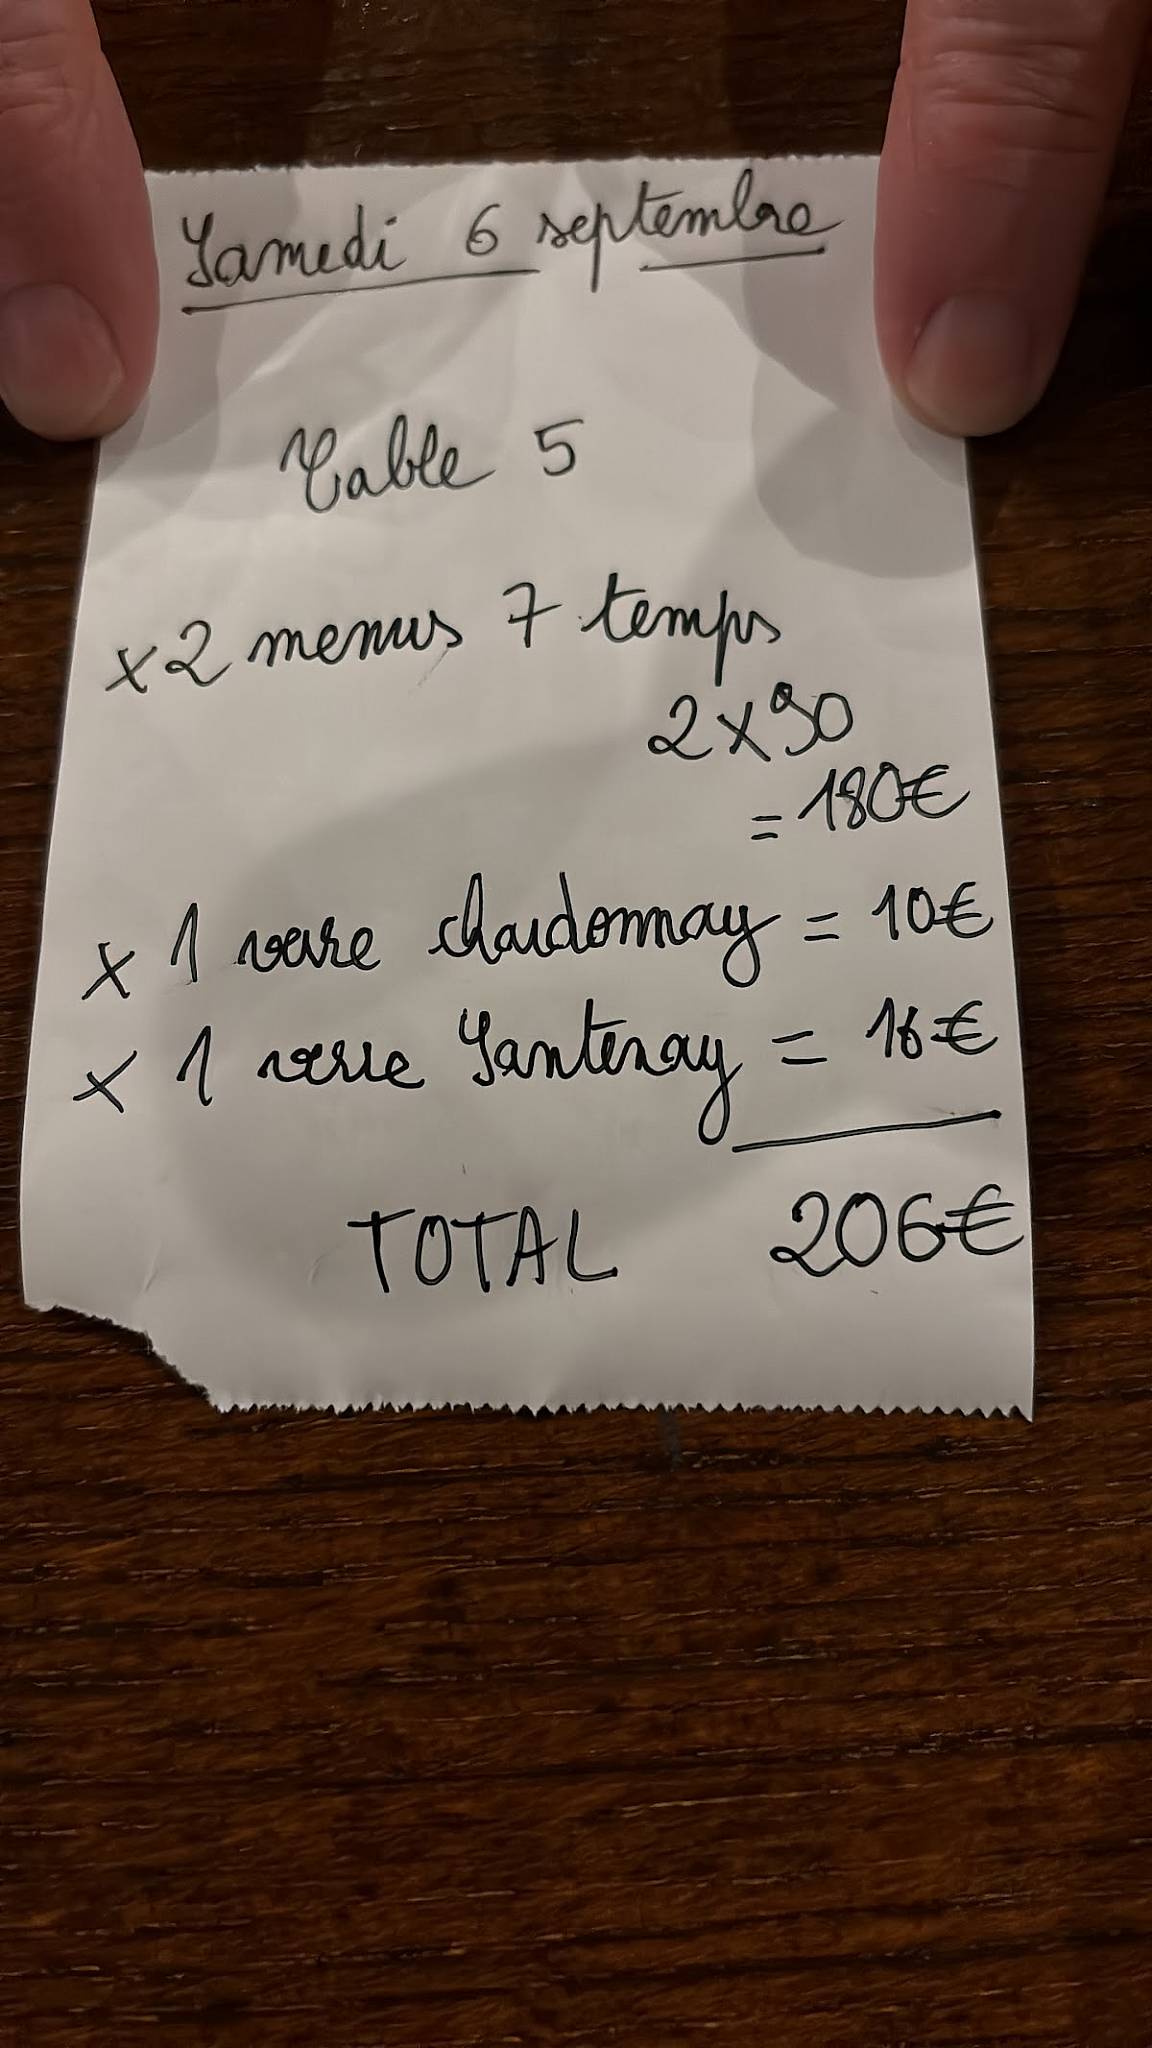 Samedi 6 septembre
Table 5
x 2 menus 7 temps
2 x 90
= 180€
x 1 verre chardonnay = 10€
x 1 verre Santenay = 16€
TOTAL 206€